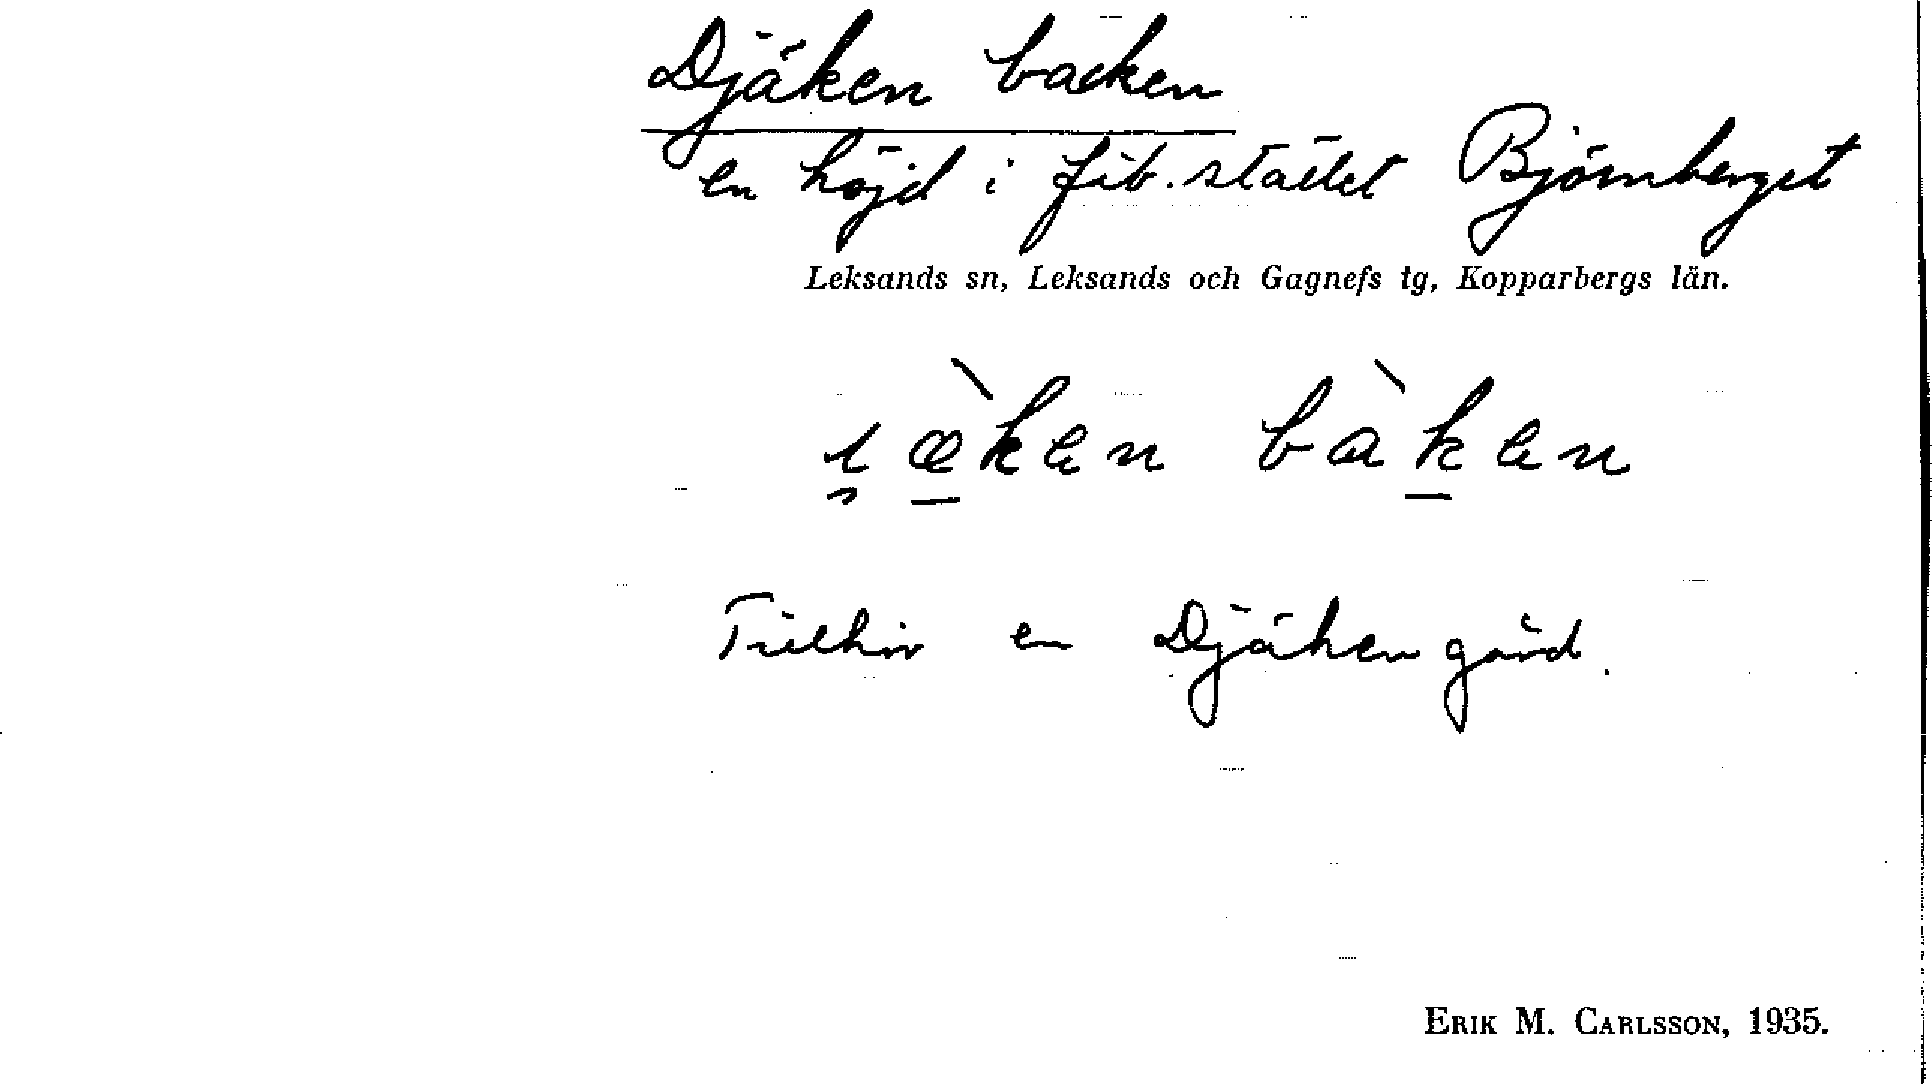 Djäken backen
en höjd i fäb.stället Björnberget
Leksands sn, Leksands och Gagnefs tg, Kopparbergs län.
bàken
Tillhör en Djäken gård.
ERIK M. CARLSSON, 1935.